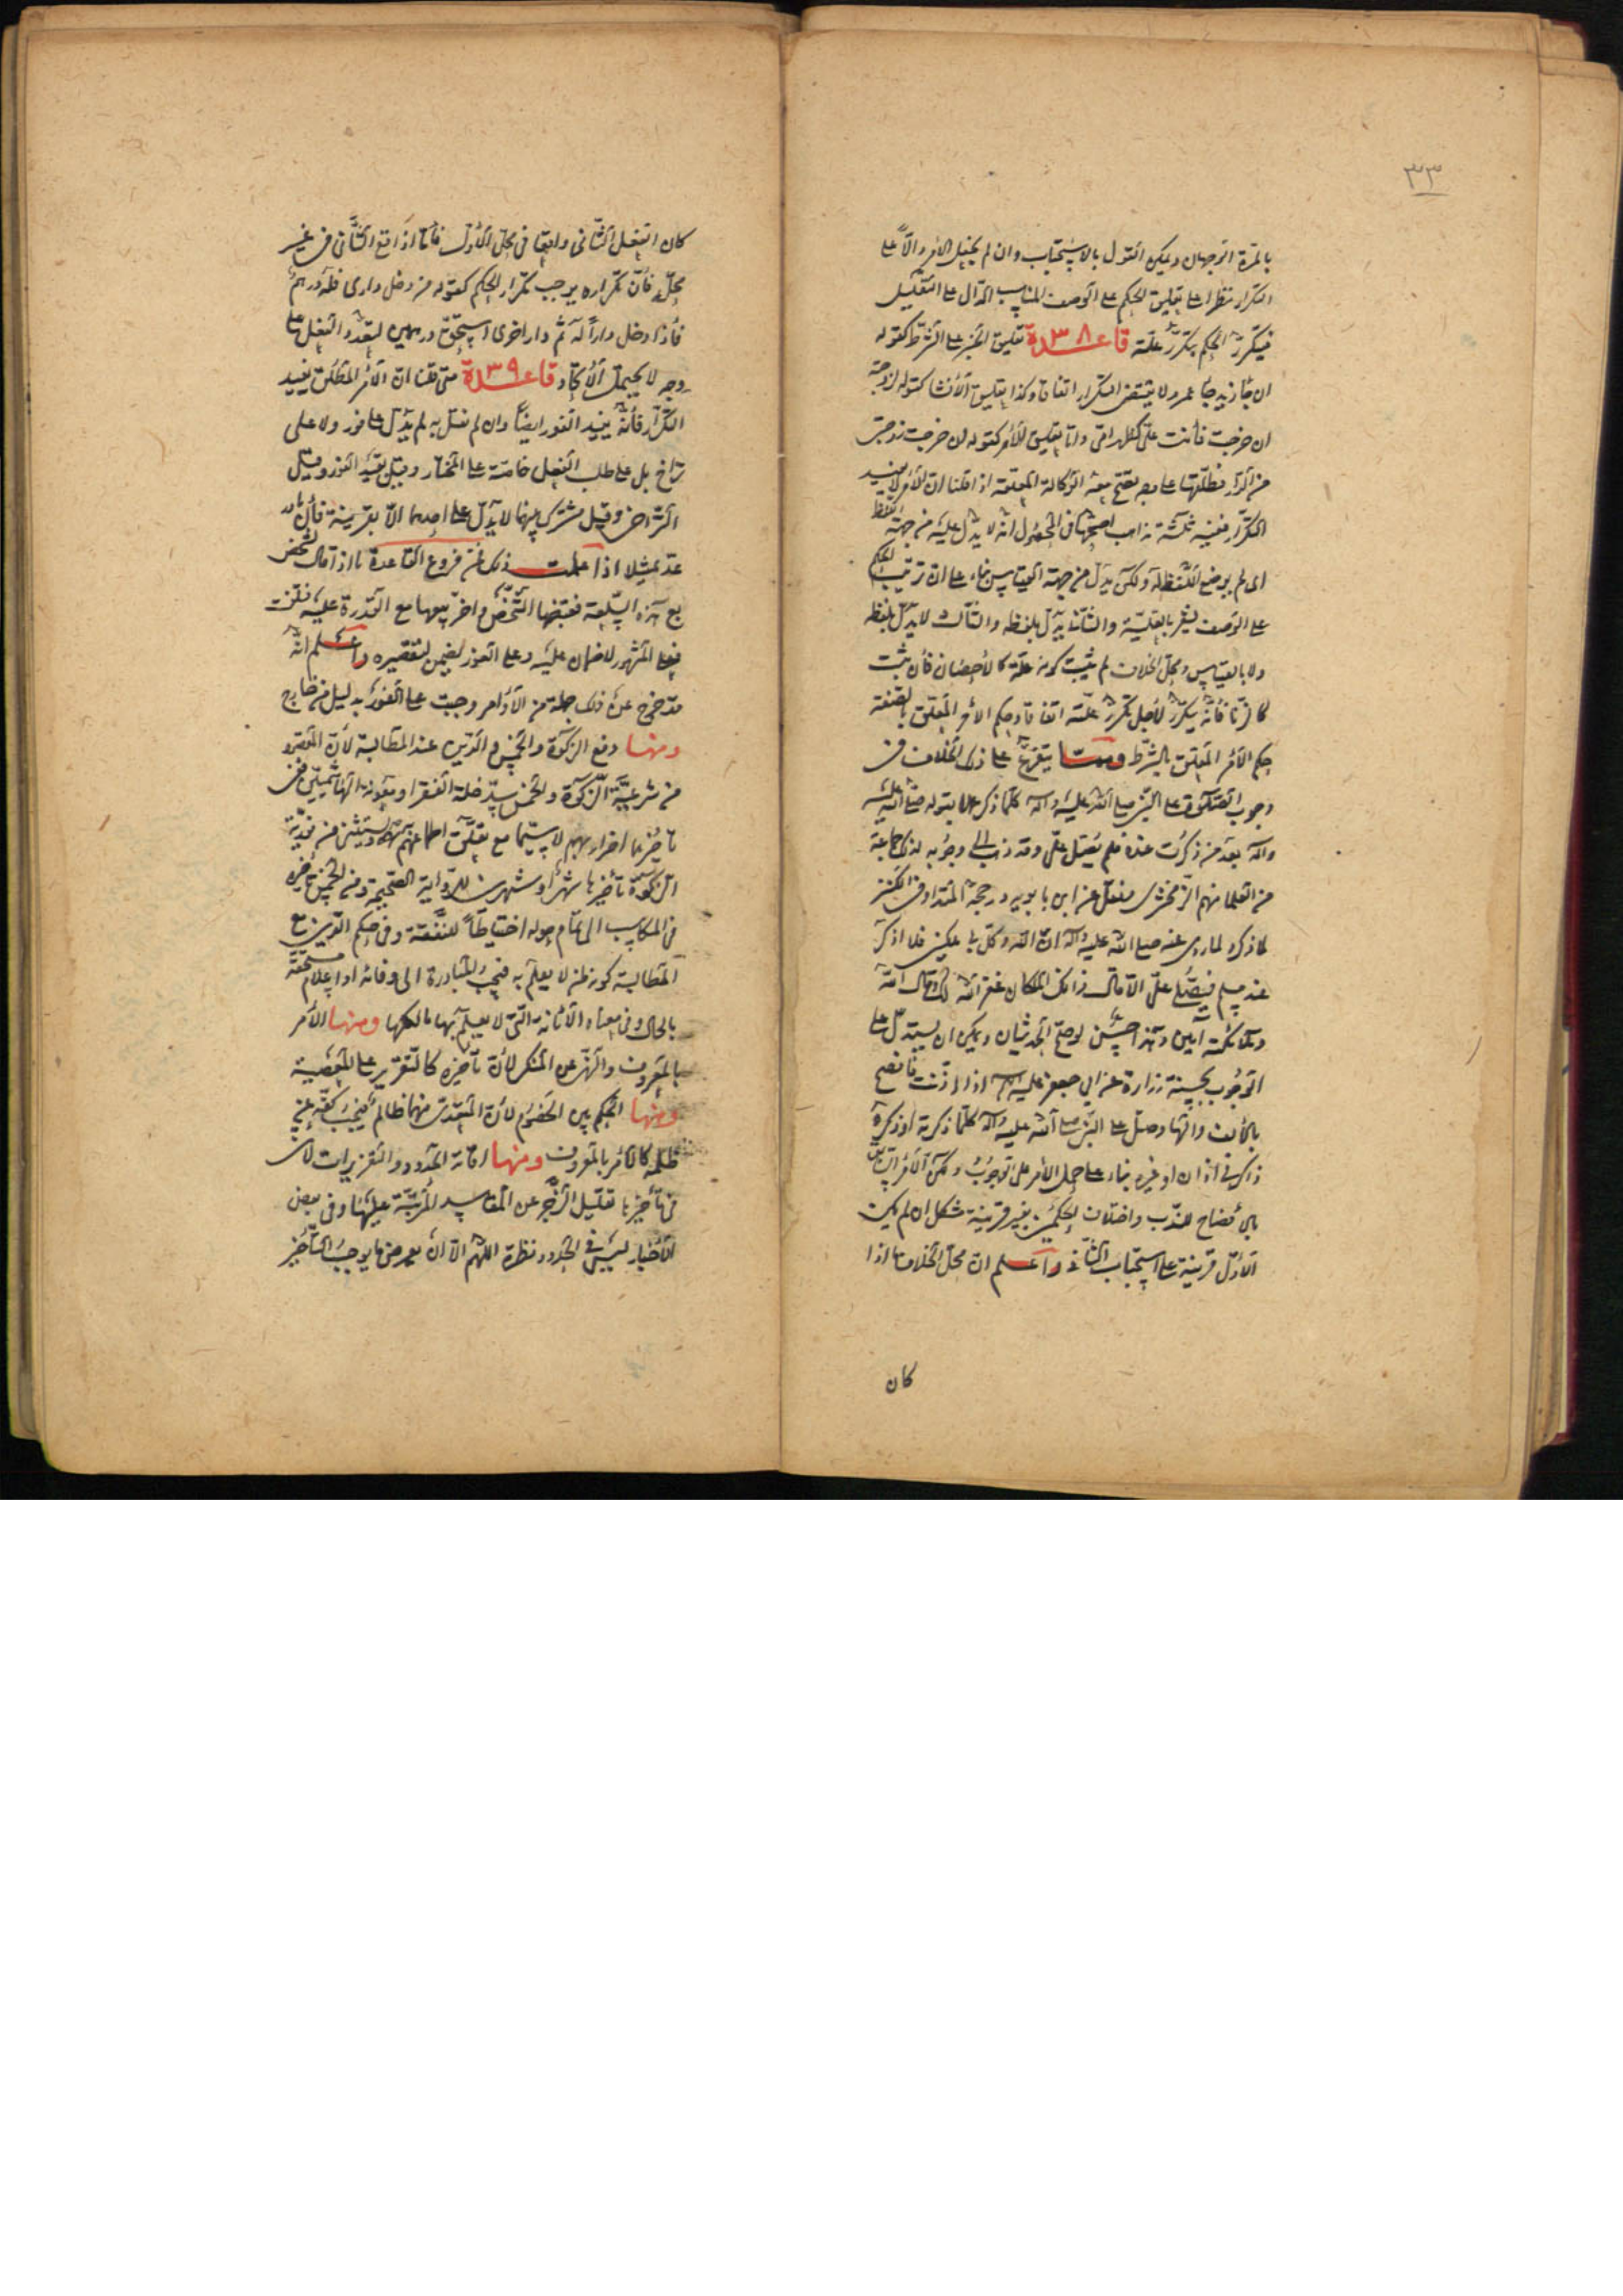 ٣٣
بالمرة الوجهان ويمكن القول بالاستحباب وان لم يجعل الأمر دالاً على
التكرار نظرا الى تعليق الحكم على الوصف المناسب الدال على التعليل
فيتكرر الحكم بتكرر علته قاعدة ٣٨ تعليق الخبر على الشرط كقوله
ان جاء زيد جاء عمرو لا يقتضى التكرار اتفاقا وكذا تعليق الانشا كقوله لزوجته
ان خرجت فانت علىّ كظهر امى واما تعليق الأمر كقوله ان خرجت زوجتى
من الدار فطلقها على وجه تصح معه الوكالة المعلقة اذا قلنا ان الأمر لا يفيد
التكرار ففيه ثلثة مذاهب اصحها فى المحصول انه لا يدل عليه من جهة اللفظ
اى لم يوضع اللفظ له ولكن يدل من جهة القياس بناء على ان ترتيب الحكم
على الوصف يشعر بالعلية والثانى يدل بلفظه والثالث لا يدل بلفظه
ولا بالقياس ومحل الخلاف لم يثبت كونه علة كالاحصان فان ثبت
كالزنا فأنه يتكرر لأجل تكرر علته اتفاقا وحكم الأمر المعلق بالصفة
حكم الأمر المعلق بالشرط ومما يتفرع على ذلك الخلاف فى
وجوب الصلوة على النبى صلى الله عليه وآله كلما ذكر عملا بقوله صلى الله عليه
وآله بعد من ذكرت عنده فلم يصل علىّ وقد ذهب الى وجوبه لذلك جماعة
من العلما منهم الزمخشرى ونقل عن ابن بابويه ورجحه المقداد فى الكنز
كلما ذكره لما روى عنه صلى الله عليه وآله ان الله وكل بى ملكين فلا اذكر
عند مسلم فيصلى علىّ الا قال ذانك الملكان غفر الله لك وقال الله
وملائكته آمين وهذا حسن لو صح الحديثان ويمكن ان يستدل على
الوجوب بحسنة زرارة عن ابى جعفر عليه السلام اذا اذنت فافصح
بالألف والها وصل على النبى صلى الله عليه وآله كلما ذكرته او ذكره
ذاكر فى اذان او غيره بناء على حمل الامر على الوجوب ولكن الأمر السابق
بالأفصاح للندب واختلاف الحكمين بغير قرينة مشكل ان لم يكن
الأول قرينة على استحباب الثانى واعلم ان محل الخلاف ما اذا
كان
كان الفعل الثانى واقعا فى محل الأول فأما اذا وقع الثانى فى غير
محله فأن تكراره يوجب تكرار الحكم كقوله من دخل دارى فله درهم
فأذا دخل داراً له ثم دار اخرى استحق درهمين لتعدد الفعل على
وجه لا يحتمل الاتحاد قاعدة ٣٩ متى قلنا ان الأمر المطلق يفيد
التكرار فأنه يفيد الفور ايضاً وان لم نقل به لم يدل على فور ولا على
تراخ بل على طلب الفعل خاصة على المختار وقيل يفيد الفور وقيل
التراخى وقيل مشترك بينهما لا يدل على احدهما الا بقرينة
اذا علمت ذلك فمن فروع القاعدة ما اذا قال لشخص
بع هذه السلعة فقبضها الشخص واخر بيعها مع القدرة عليه فتلفت
فعلى المشهور لا ضمان عليه وعلى الفور يضمن لتقصيره واعلم انه
قد خرج عن ذلك جملة من الأوامر وجبت على الفور بدليل من خارج
ومنها دفع الزكوة والخمس والدين عند المطالبة لأن المقصود
من شرعية الزكوة والخمس سد خلة الفقرا ومعونة الهاشميين ففى
تأخيرها اضرار بهم لا سيما مع تعلق اطماعهم بها ويستثنى من فورية
الزكوة تأخيرها شهراً او شهرين للرواية الصحيحة ومن الخمس تأخيره
فى المكاسب الى تمام حوله احتياطاً للنفقة وفى حكم الدين مع
المطالبة كونه ممن لا يعلم به فيجب المبادرة الى وفائه او اعلام مستحقه
بالحال وفى معناه الأمانة التى لا يعلم بها مالكها ومنها الأمر
بالمعروف والنهى عن المنكر لأن تأخيره كالتقرير على المعصية
ومنها الحكم بين الخصوم لأن المتعدى منهما ظالم فيجب كفه عن
ظلمه كالأمر بالمعروف ومنها اقامة الحدود والتعزيرات لأن
فى تأخيرها تقليل الزجر عن المفاسد المترتبة عليها وفى بعض
الأخبار ليس فى الحدود نظرة اللهم الا ان يعرض ما يوجب التأخير